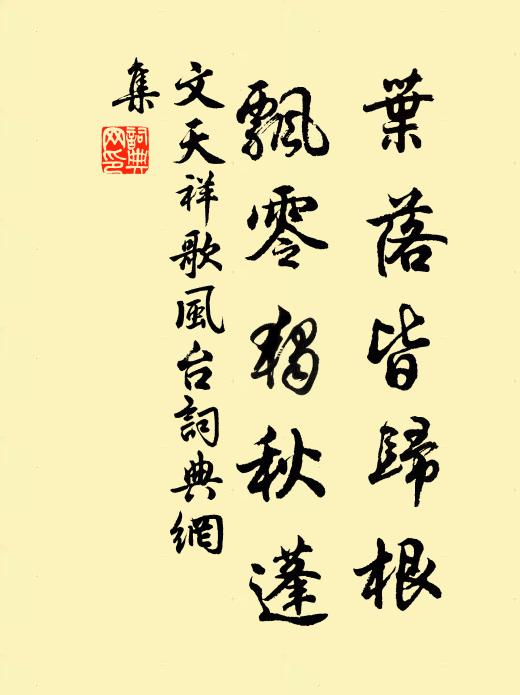 葉落皆歸根
飄零獨秋蓬
文天祥歌風台詞典網
集
詞典網印